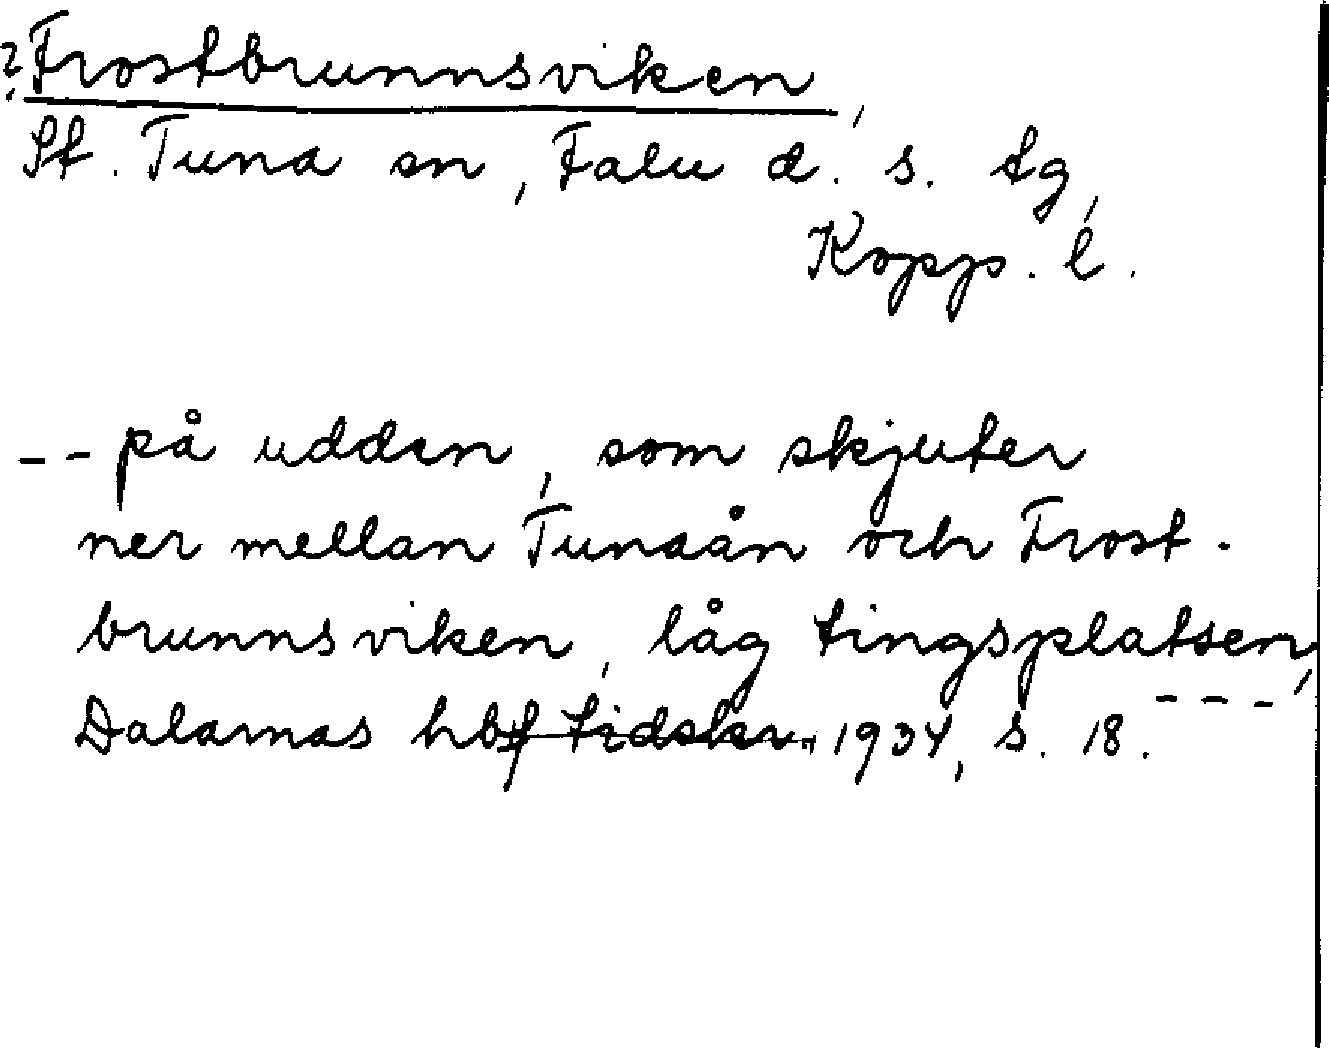 ?Frostbrunnsviken,
St. Tuna sn, Falu d. s. tg,
Kopp. l.
-- på udden, som skjuter
ner mellan Tunaån och Frost-
brunnsviken, låg tingsplatsen, ---
Dalarnas hbf tidskr. 1934, s. 18.